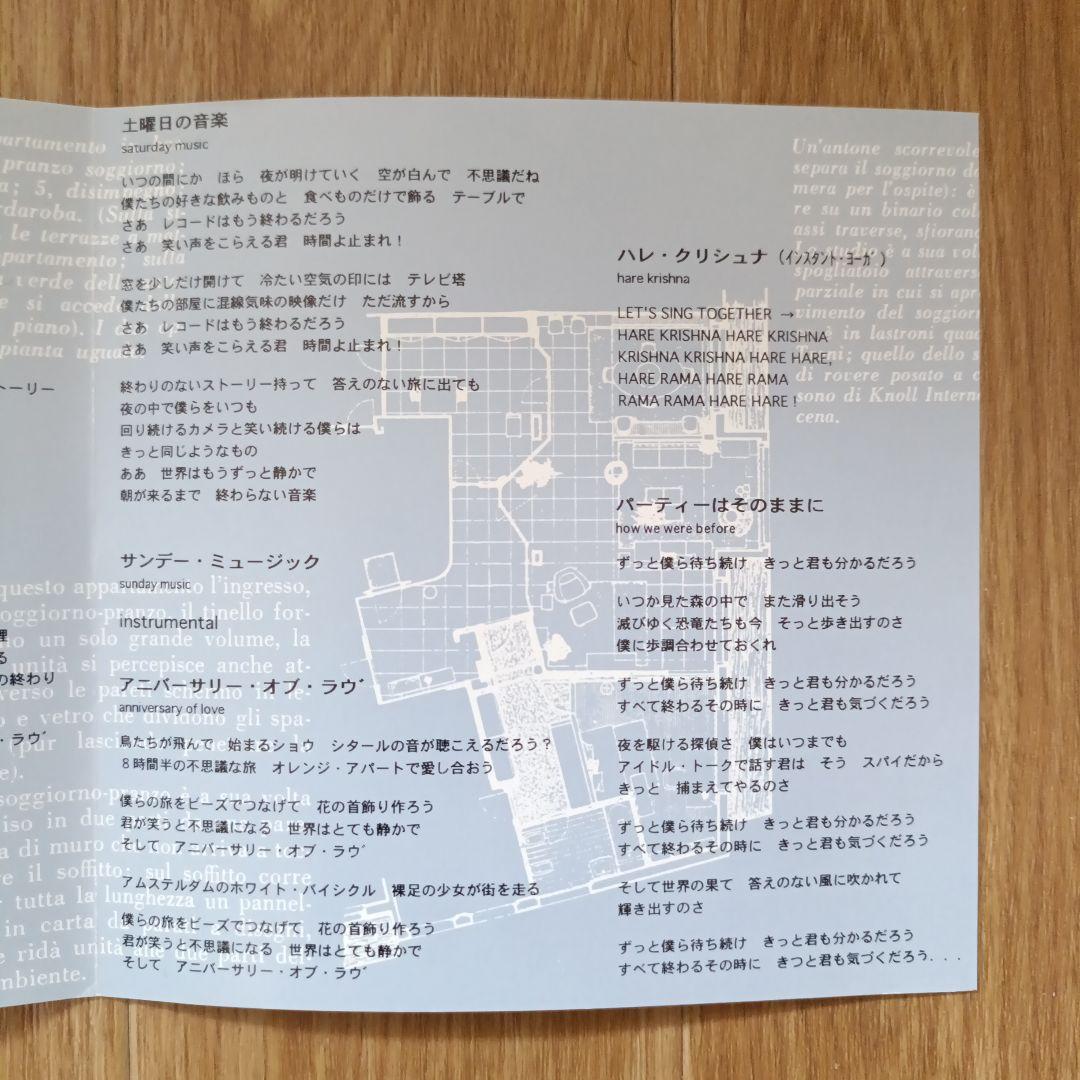 土曜日の音楽
saturday music
いつの間にか　ほら　夜が明けていく　空が白んで　不思議だね
僕たちの好きな飲みものと　食べものだけで飾る　テーブルで
さあ　レコードはもう終わるだろう
さあ　笑い声をこらえる君　時間よ止まれ！
窓を少しだけ開けて　冷たい空気の印には　テレビ塔
僕たちの部屋に混線気味の映像だけ　ただ流すから
さあ　レコードはもう終わるだろう
さあ　笑い声をこらえる君　時間よ止まれ！
終わりのないストーリー持って　答えのない旅に出ても
夜の中で僕らをいつも
回り続けるカメラと笑い続ける僕らは
きっと同じようなもの
ああ　世界はもうずっと静かで
朝が来るまで　終わらない音楽
サンデー・ミュージック
sunday music
instrumental
アニバーサリー・オブ・ラヴ
anniversary of love
鳥たちが飛んで　始まるショウ　シタールの音が聴こえるだろう？
８時間半の不思議な旅　オレンジ・アパートで愛し合おう
僕らの旅をビーズでつなげて　花の首飾り作ろう
君が笑うと不思議になる　世界はとても静かで
そして　アニバーサリー・オブ・ラヴ
アムステルダムのホワイト・バイシクル　裸足の少女が街を走る
僕らの旅をビーズでつなげて　花の首飾り作ろう
君が笑うと不思議になる　世界はとても静かで
そして　アニバーサリー・オブ・ラヴ
ハレ・クリシュナ（ｲﾝｽﾀﾝﾄ・ﾖｰｶﾞ）
hare krishna
LET'S SING TOGETHER →
HARE KRISHNA HARE KRISHNA
KRISHNA KRISHNA HARE HARE,
HARE RAMA HARE RAMA
RAMA RAMA HARE HARE !
パーティーはそのままに
how we were before
ずっと僕ら待ち続け　きっと君も分かるだろう
いつか見た森の中で　また滑り出そう
滅びゆく恐竜たちも今　そっと歩き出すのさ
僕に歩調合わせておくれ
ずっと僕ら待ち続け　きっと君も分かるだろう
すべて終わるその時に　きっと君も気づくだろう
夜を駆ける探偵さ　僕はいつまでも
アイドル・トークで話す君は　そう　スパイだから
きっと　捕まえてやるのさ
ずっと僕ら待ち続け　きっと君も分かるだろう
すべて終わるその時に　きっと君も気づくだろう
そして世界の果て　答えのない風に吹かれて
輝き出すのさ
ずっと僕ら待ち続け　きっと君も分かるだろう
すべて終わるその時に　きつと君も気づくだろう．．．
トーリー
る
の終わり
・ラヴ
pranzo soggiorno;
a; 5, disimpegno
rdaroba. (Sulla
le terrazze a
partamento; sulla
verde della
e si accede
piano). I
pianta uguale
questo appartamento l'ingresso,
soggiorno-pranzo, il tinello for-
un solo grande volume, la
unità si percepisce anche at-
verso le pareti
e vetro che dividono gli spa-
(pur
e).
soggiorno-pranzo è a sua volta
iso in due
a di muro
re il soffitto: sul soffitto corre
tutta la lunghezza un pannel-
in carta
e ridà unità alle due parti del-
mbiente.
Un'antone scorrevole
separa il soggiorno da
mera per l'ospite): è
re su un binario col
assi traverse, sfioran
Lo studio è a sua vol
spogliatoio attravers
parziale in cui si apr
vimento del soggior
è in lastroni quad
quello dello s
di rovere posato a c
sono di Knoll Intern
cena.